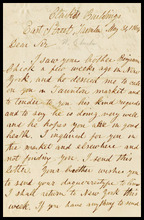 Buildings
East Street, Taunton, May 29, 1849
Dear Sir
I saw your brother Benjamin
Shick a few weeks ago in New
York, and he desired me to call
on you in Taunton market and
to tender to you his kind regards
and to say he is doing very well
and he hopes you are in good
health. I inquired for you in
the market and elsewhere and
not finding you, I send this
letter. Your brother wishes you
to send your daguerreotype to him
I shall return to New York this
week. If you have anything to send